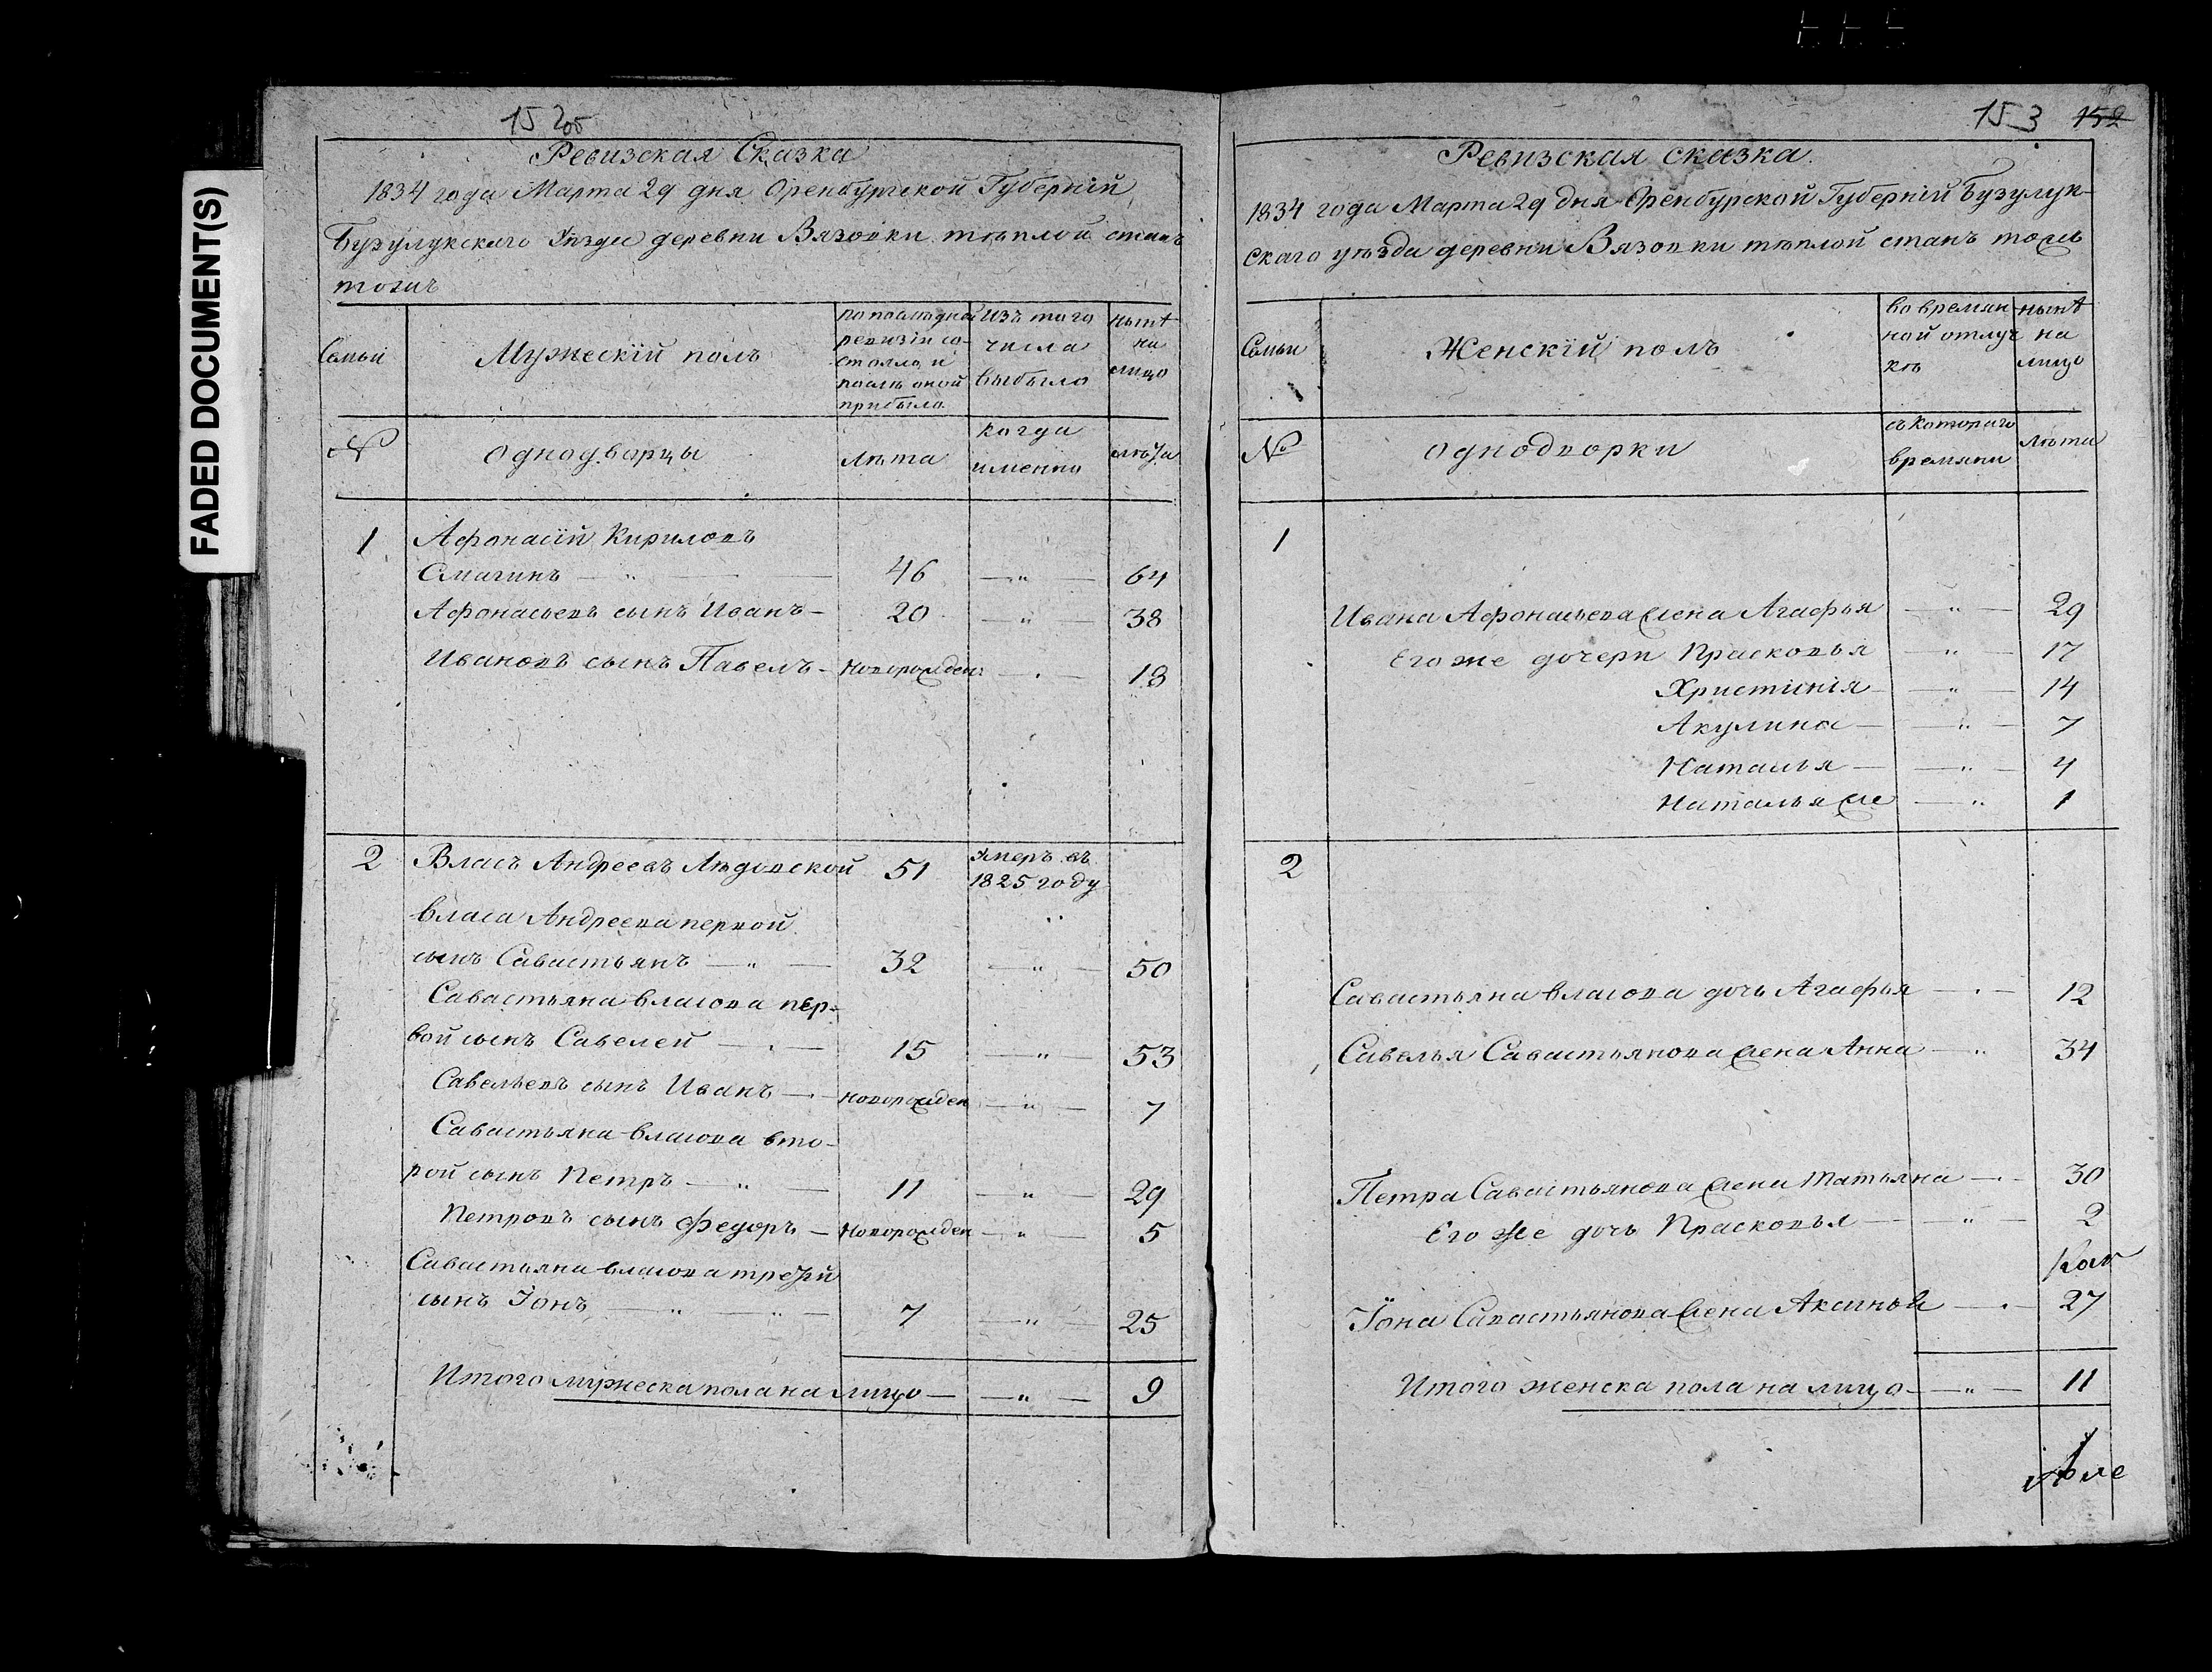 FADED DOCUMENT(S)
152об
Ревизская Сказка
1834 года Марта 29 дня Оренбургской Губерній
Бузулукскаго Уѣзда деревни Вязовки тѣплой станъ
тожъ
Семьи
Мужескій полъ
по последней ревизіи состояло, и послѣ оной прибыло
изъ того числа выбыло
нынѣ на лицо
№
однодворцы
лѣта
когда именно
лѣта
1 Афонасій Кириловъ
Смагинъ — „ — 46 — „ — 64
Афонасьевъ сынъ Иванъ — 20 — „ — 38
Ивановъ сынъ Павелъ — новорожден: — „ — 18
2 Власъ Андреевъ Лѣдовской 51 Умеръ въ 1825 году
Власа Андреева первой „
сынъ Савастьянъ — „ — 32 — „ — 50
Савастьяна Власова пер-
вой сынъ Савелей — „ — 15 — „ — 53
Савельевъ сынъ Иванъ — новорожден — „ — 7
Савастьяна Власова вто-
рой сынъ Петръ — „ — 11 — „ — 29
Петровъ сынъ Федоръ — новорожден — „ — 5
Савастьяна Власова третій
сынъ Іонъ — „ — „ — 7 — „ — 25
Итого мужеска пола на лицо — — „ — 9
153 152
Ревизская сказка.
1834 года Марта 29 дня Оренбурской Губерній Бузулук-
скаго уѣзда деревни Вязовки тѣплой станъ тожъ
Семьи
Женскій полъ
во времянной отлучкѣ
нынѣ на лицо
№
однодворки
съ котораго времяни
Лѣта
1
Ивана Афонасьева жена Агафья — „ — 29
Его же дочери Прасковья — „ — 17
Христинія — „ — 14
Акулина — „ — 7
Наталья — „ — 4
Наталья же — „ 1
2
Савастьяна Власова дочь Агафья — „ — 12
Савелья Савастьянова жена Анна — „ 34
Петра Савастьянова жена Татьяна — „ — 30
Его же дочь Прасковья — „ — 2
Іона Савастьянова жена Аксинья — „ — 27
Итого женска пола на лицо — — „ — 11